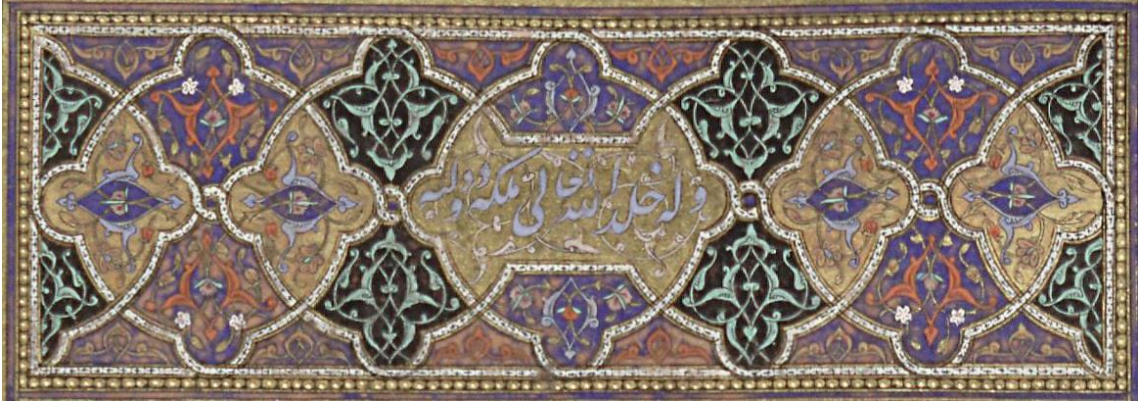 وله خلد الله تعالی ملکه و دولته